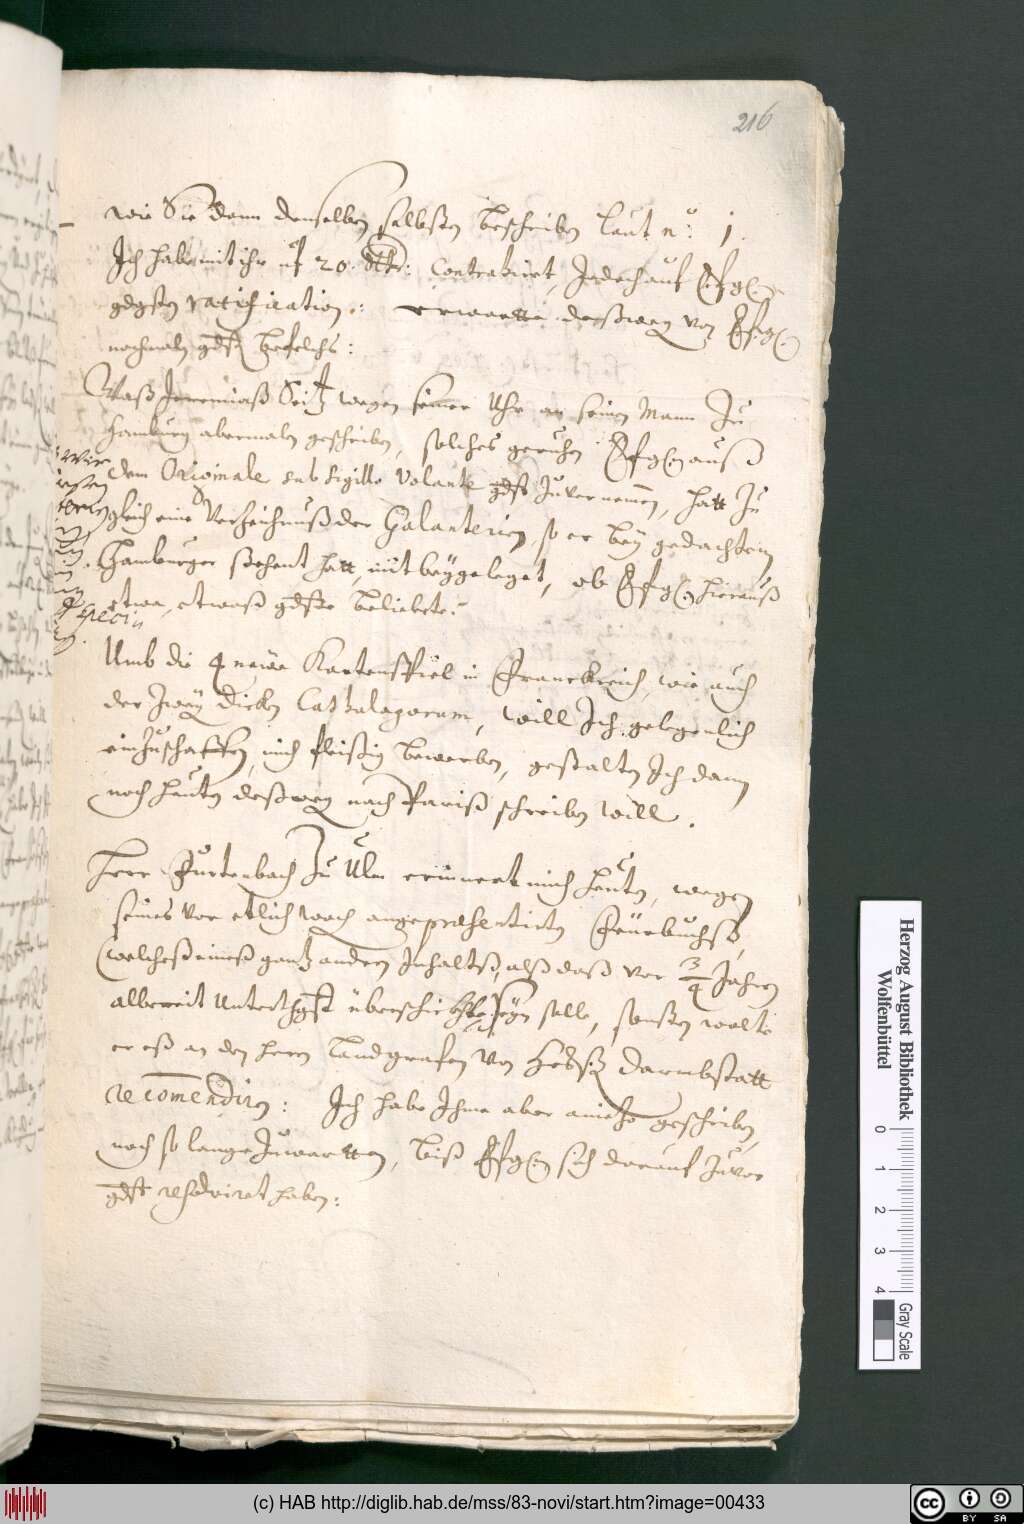 216
wie Sie dann denselben selbsten beschreiben laut nº: 1.
Ich habe mit ihr uf 20. Rthr: contrahirt, Jedoch auf Efg(n)
gdgsten ratification: erwartte deßweg von Efg(n)
nochmaln gdst befelchs:
Waß Jeremiaß Seitz wegen seiner Uhr an seinen Mann Zu
Hamburg abermalen geschrieben, solches geruhen Efg(n) auß
dem Originale sub sigillo Volante gdst Zuvernemen, hatt Zu
gleich eine Verzeichnuß der Galanterien so er bey gedachtem
Hamburger stehent hatt, mit beygeleget, ob Efg(n) hierauß
etwa, etwaß gdste beliebete:
Umb die 4 newe Kartenspiel in Franckreich, wie auch
der Zway dicken Cathalagorum, will Ich gelegenlich
einZuschaffen, mich fleißig bewerben, gestalten Ich dann
noch heuten deßweg nach Pariß schreiben will.
Herr Furtenbach Zu Ulm erinnert mich heuten, wegen
seines vor etlich woch angepræsentirten Feürbuchß,
(welcheß eineß gantz andern Inhaltß, alß daß vor 3/4 Jahren
albereit Unterthgst überschickt seyn solle, sonsten wolte
er eß an den Herrn Landgrafen von Heßen Darmbstatt
recomendiren: Ich habe Ihme aber anietzo geschrieben,
noch so lange Zuwartten, biß Efg(n) sich darauf Zuvor
gdst resolvirt haben:
Herzog August Bibliothek
Wolfenbüttel
0 1 2 3 4
Gray Scale
(c) HAB http://diglib.hab.de/mss/83-novi/start.htm?image=00433
cc BY SA